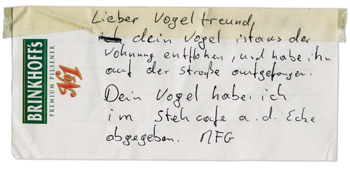 Lieber Vogelfreund,
dein Vogel ist aus der
Wohnung entflohen, und habe ihn
auf der Straße aufgefangen.
Dein Vogel habe ich
im Stehcafe a. d. Ecke
abgegeben. MFG
BRINKHOFF'S
No1
PREMIUM PILSENER